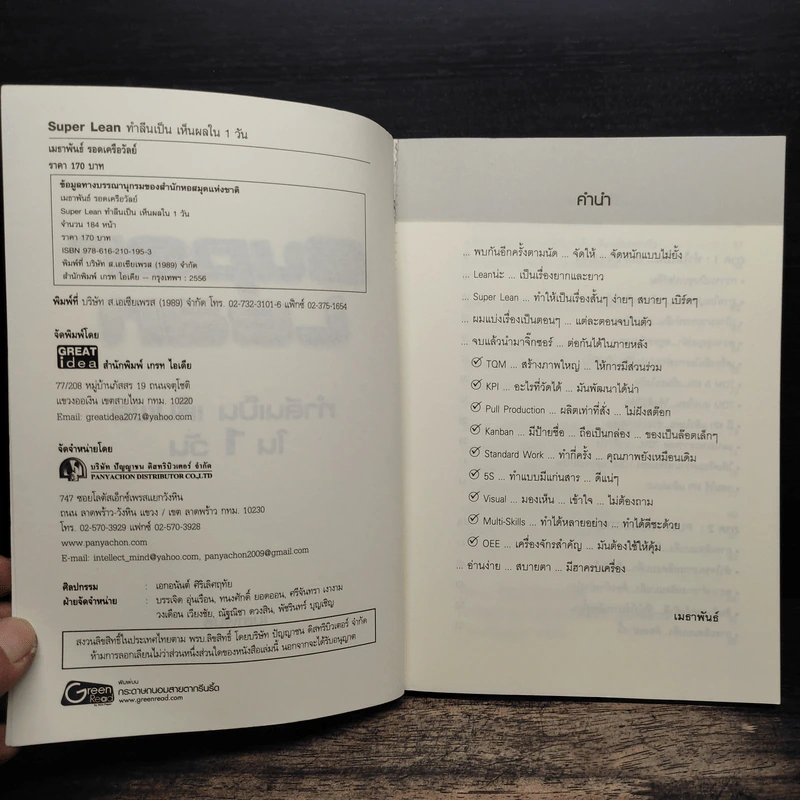 Super Lean ทำลีนเป็น เห็นผลใน 1 วัน
เมธาพันธ์ รอดเครือวัลย์
ราคา 170 บาท
ข้อมูลทางบรรณานุกรมของสำนักหอสมุดแห่งชาติ
เมธาพันธ์ รอดเครือวัลย์
Super Lean ทำลีนเป็น เห็นผลใน 1 วัน
จำนวน 184 หน้า
ราคา 170 บาท
ISBN 978-616-210-195-3
พิมพ์ที่ บริษัท ส.เอเซียเพรส (1989) จำกัด
สำนักพิมพ์ เกรท ไอเดีย -- กรุงเทพฯ : 2556
พิมพ์ที่ บริษัท ส.เอเซียเพรส (1989) จำกัด โทร. 02-732-3101-6 แฟ็กซ์ 02-375-1654
จัดพิมพ์โดย
GREAT idea สำนักพิมพ์ เกรท ไอเดีย
77/208 หมู่บ้านภัสสร 19 ถนนจตุโชติ
แขวงออเงิน เขตสายไหม กทม. 10220
Email: greatidea2071@yahoo.com
จัดจำหน่ายโดย
บริษัท ปัญญาชน ดิสทริบิวเตอร์ จำกัด
PANYACHON DISTRIBUTOR CO.,LTD
747 ซอยโลตัสเอ็กซ์เพรสแยกวังหิน
ถนน ลาดพร้าว-วังหิน แขวง / เขต ลาดพร้าว กทม. 10230
โทร. 02-570-3929 แฟกซ์ 02-570-3928
www.panyachon.com
E-mail: intellect_mind@yahoo.com, panyachon2009@gmail.com
ศิลปกรรม : เอกอนันต์ ศิริเลิศฤทัย
ฝ่ายจัดจำหน่าย : บรรเจิด อุ่นเรือน, ทนงศักดิ์ ยอดออน, ศรีจันทรา เงางาม
วงเดือน เวียงชัย, ณัฐณิชา ดวงสิน, พัชรินทร์ บุญเชิญ
สงวนลิขสิทธิ์ในประเทศไทยตาม พรบ.ลิขสิทธิ์ โดยบริษัท ปัญญาชน ดิสทริบิวเตอร์ จำกัด
ห้ามการลอกเลียนไม่ว่าส่วนหนึ่งส่วนใดของหนังสือเล่มนี้ นอกจากจะได้รับอนุญาต
Green Read
พิมพ์บน
กระดาษถนอมสายตากรีนรี้ด
www.greenread.com
คำนำ
... พบกันอีกครั้งตามนัด ... จัดให้ ... จัดหนักแบบไม่ยั้ง
... Leanน่ะ ... เป็นเรื่องยากและยาว
... Super Lean ... ทำให้เป็นเรื่องสั้นๆ ง่ายๆ สบายๆ เบิร์ดๆ
... ผมแบ่งเรื่องเป็นตอนๆ ... แต่ละตอนจบในตัว
... จบแล้วนำมาจิ๊กซอร์ ... ต่อกันได้ในภายหลัง
TQM ... สร้างภาพใหญ่ ... ให้การมีส่วนร่วม
KPI ... อะไรที่วัดได้ ... มันพัฒนาได้น่า
Pull Production ... ผลิตเท่าที่สั่ง ... ไม่ฝังสต๊อก
Kanban ... มีป้ายชื่อ ... ถือเป็นกล่อง ... ของเป็นล๊อตเล็กๆ
Standard Work ... ทำกี่ครั้ง ... คุณภาพยังเหมือนเดิม
5S ... ทำแบบมีแก่นสาร ... ดีแน่ๆ
Visual ... มองเห็น ... เข้าใจ ... ไม่ต้องถาม
Multi-Skills ... ทำได้หลายอย่าง ... ทำได้ดีซะด้วย
OEE ... เครื่องจักรสำคัญ ... มันต้องใช้ให้คุ้ม
... อ่านง่าย ... สบายตา ... มีฮาครบเครื่อง
เมธาพันธ์